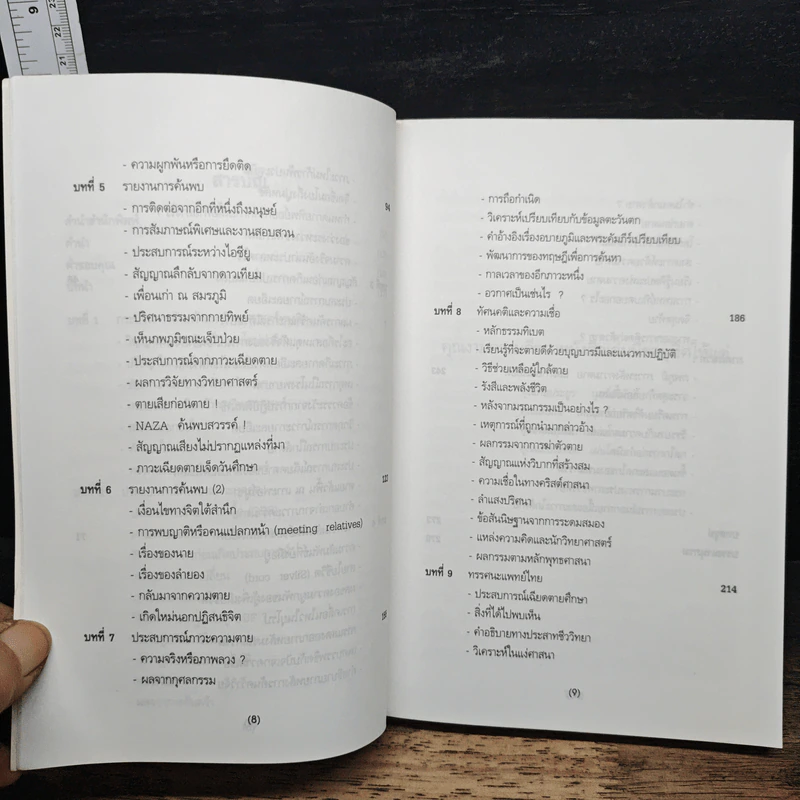 9
23
22
21
- ความผูกพันหรือการยึดติด
บทที่ 5 รายงานการค้นพบ 94
- การติดต่อจากอีกที่หนึ่งถึงมนุษย์
- การสัมภาษณ์พิเศษและงานสอบสวน
- ประสบการณ์ระหว่างไอซียู
- สัญญาณลึกลับจากดาวเทียม
- เพื่อนเก่า ณ สมรภูมิ
- ปริศนาธรรมจากกายทิพย์
- เห็นภพภูมิขณะเจ็บป่วย
- ประสบการณ์จากภาวะเฉียดตาย
- ผลการวิจัยทางวิทยาศาสตร์
- ตายเสียก่อนตาย !
- NAZA ค้นพบสวรรค์ !
- สัญญาณเสียงไม่ปรากฏแหล่งที่มา
- ภาวะเฉียดตายเจ็ดวันศึกษา
บทที่ 6 รายงานการค้นพบ (2)
- เงื่อนไขทางจิตใต้สำนึก
- การพบญาติหรือคนแปลกหน้า (meeting relatives)
- เรื่องของนาย
- เรื่องของลำยอง
- กลับมาจากความตาย
- เกิดใหม่นอกปฏิสนธิจิต
บทที่ 7 ประสบการณ์ภาวะความตาย
- ความจริงหรือภาพลวง ?
- ผลจากกุศลกรรม
(8)
- การถือกำเนิด
- วิเคราะห์เปรียบเทียบกับข้อมูลตะวันตก
- คำอ้างอิงเรื่องอบายภูมิและพระคัมภีร์เปรียบเทียบ
- พัฒนาการของทฤษฎีเพื่อการค้นหา
- กาลเวลาของอีกภาวะหนึ่ง
- อวกาศเป็นเช่นไร ?
บทที่ 8 ทัศนคติและความเชื่อ 186
- หลักธรรมทิเบต
- เรียนรู้ที่จะตายดีด้วยบุญบารมีและแนวทางปฏิบัติ
- วิธีช่วยเหลือผู้ใกล้ตาย
- รังสีและพลังชีวิต
- หลังจากมรณกรรมเป็นอย่างไร ?
- เหตุการณ์ที่ถูกนำมากล่าวอ้าง
- ผลกรรมจากการฆ่าตัวตาย
- สัญญาณแห่งวิบากที่สร้างสม
- ความเชื่อในทางคริสต์ศาสนา
- ลำแสงปริศนา
- ข้อสันนิษฐานจากการระดมสมอง
- แหล่งความคิดและนักวิทยาศาสตร์
- ผลกรรมตามหลักพุทธศาสนา
บทที่ 9 ทรรศนะแพทย์ไทย 214
- ประสบการณ์เฉียดตายศึกษา
- สิ่งที่ได้ไปพบเห็น
- คำอธิบายทางประสาทชีววิทยา
- วิเคราะห์ในแง่ศาสนา
(9)